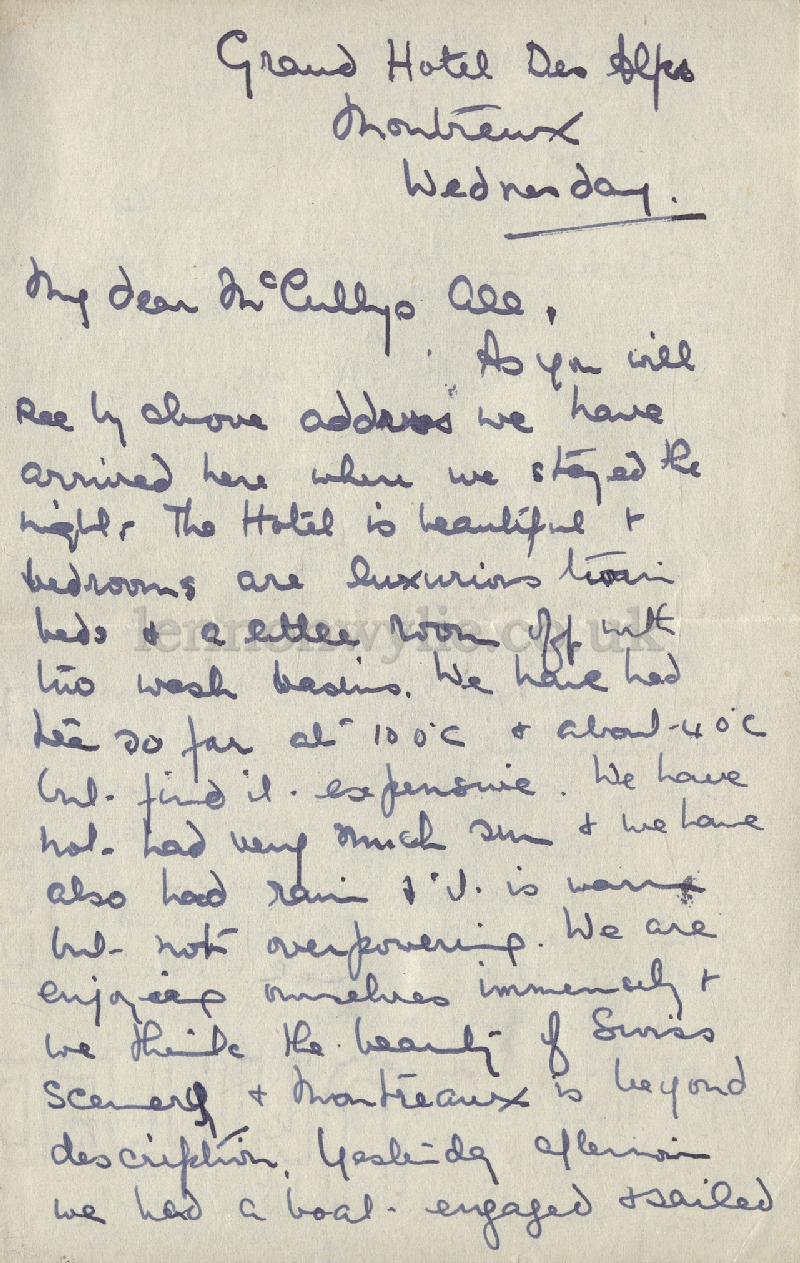 Grand Hotel Des Alps
Montreux
Wednesday.
My dear McCullys All,
As you will
see by above address we have
arrived here where we stayed the
night. The Hotel is beautiful &
bedrooms are luxurious twin
beds & a little room off with
two wash basins. We have had
tea so far at 100°C & about 40°C
but find it expensive. We have
not had very much sun & we have
also had rain & it is warm
but not overpowering. We are
enjoying ourselves immensely &
we think the beauty of Swiss
scenery & Montreaux is beyond
description. Yesterday afternoon
we had a boat engaged & sailed
lennonwylie.co.uk